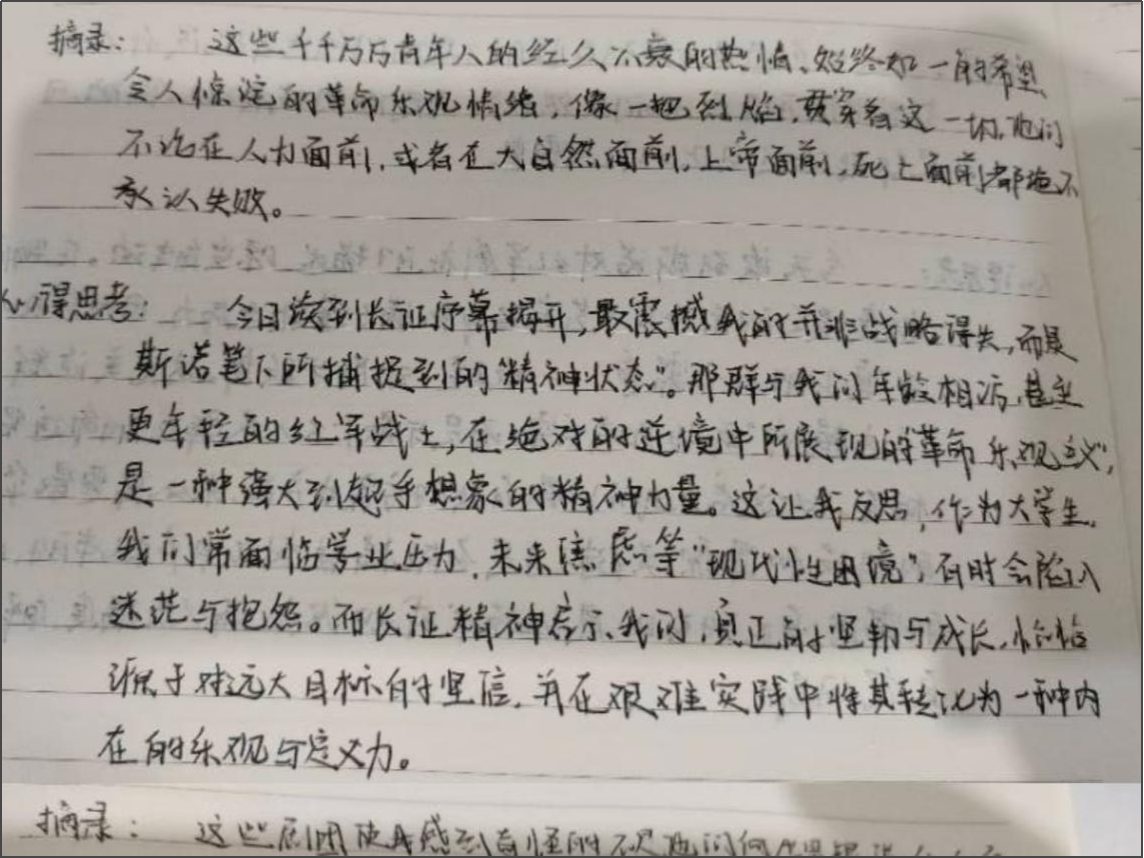 摘录：这些千千万万青年人的经久不衰的热情、始终如一的希望
令人惊诧的革命乐观情绪，像一把烈焰，贯穿着这一切，他们
不论在人力面前，或者在大自然面前，上帝面前，死亡面前都绝不
承认失败。
心得思考：今日读到长征序幕揭开，最震撼我的并非战略得失，而是
斯诺笔下所捕捉到的"精神状态"。那群与我们年龄相仿，甚至
更年轻的红军战士，在绝对的逆境中所展现的"革命乐观主义"，
是一种强大到超乎想象的精神力量。这让我反思，作为大学生，
我们常面临学业压力，未来焦虑等"现代性困境"，有时会陷入
迷茫与抱怨。而长征精神启示我们，真正的坚韧与成长，恰恰
源于对远大目标的坚信，并在艰难实践中将其转化为一种内
在的乐观与定义力。
摘录：这些剧团使我感到奇怪的不是他们